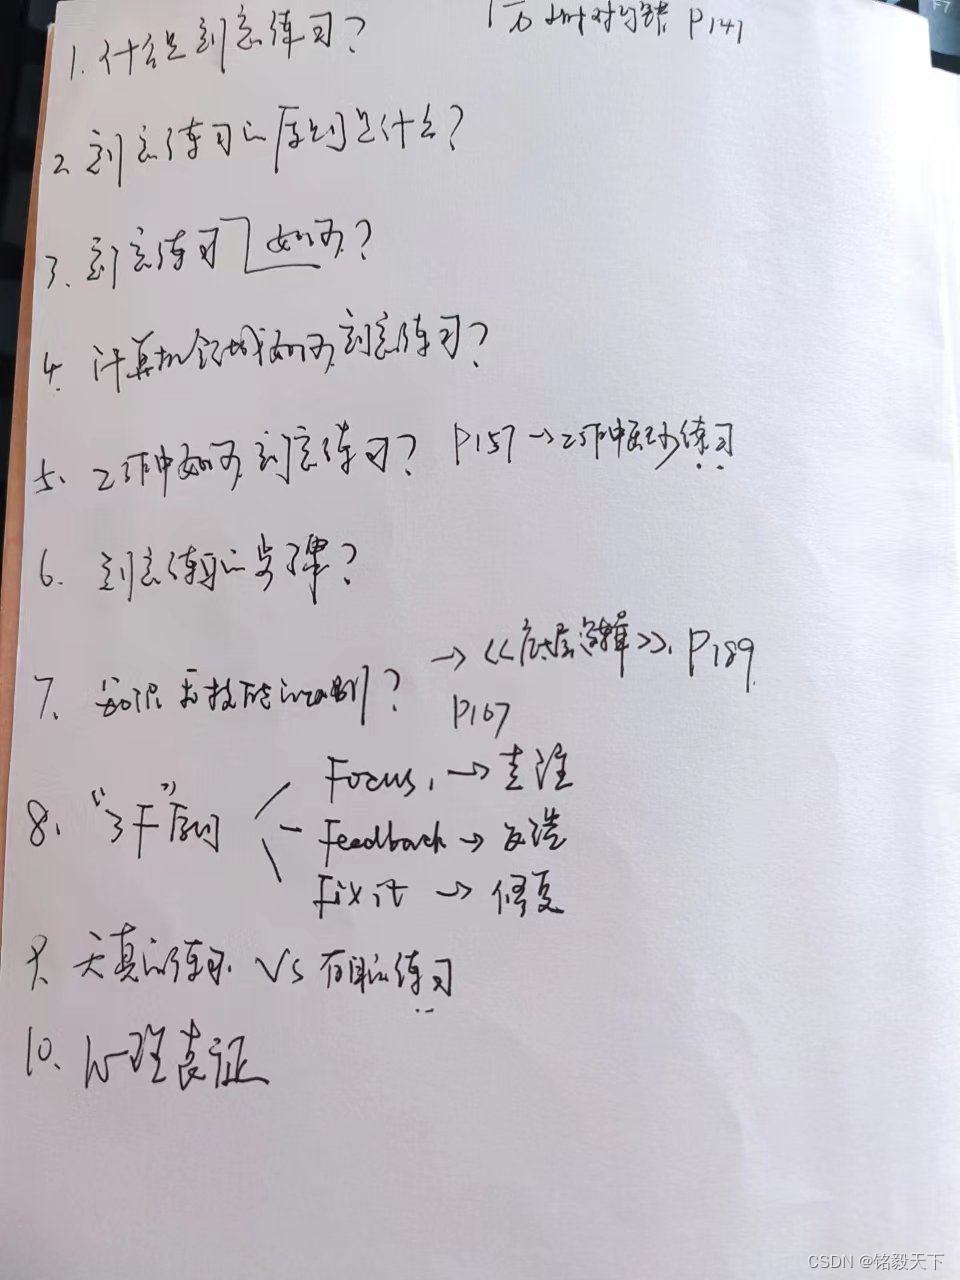 1万小时对与错 P141
1. 什么是刻意练习?
2 刻意练习的原则是什么?
3. 刻意练习 如何?
4. 计算机领域如何刻意练习?
5. 工作中如何刻意练习? P157 → 工作中 练习
6. 刻意练习的步骤?
7. 知识与技能的区别? → 《底层逻辑》. P189.
P167
8. "3F"原则 Focus, → 专注
Feedback → 反馈
Fix it → 修复
9. 天真的练习 VS 有目的练习
10. 心理表征
CSDN @铭毅天下
F7